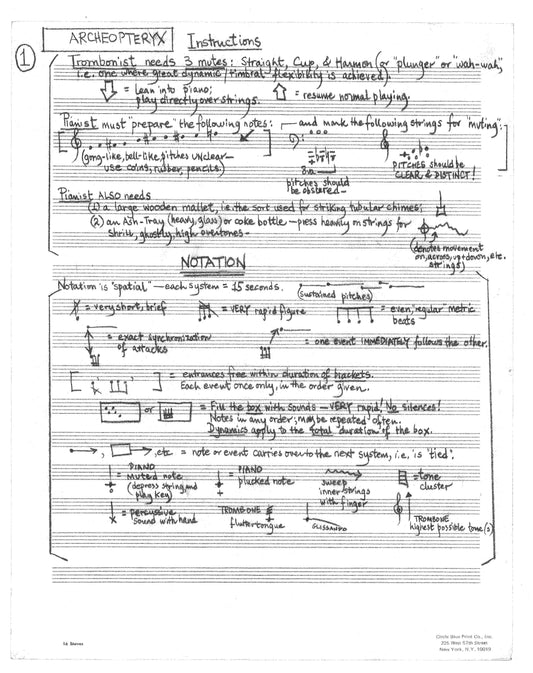 ARCHEOPTERYX Instructions
1
Trombonist needs 3 mutes: Straight, Cup, & Harmon (or "plunger" or "wah-wah,"
i.e. one where great dynamic/timbral flexibility is achieved).
= Lean into piano; = resume normal playing.
play directly over strings.
Pianist must "prepare" the following notes: — and mark the following strings for "muting":
(gong-like, bell-like, pitches unclear—
use coins, rubber, pencils)
8va
pitches should
be obscured—
PITCHES should be
CLEAR & DISTINCT!
Pianist ALSO needs
(1) a large wooden mallet, i.e. the sort used for striking tubular chimes;
(2) an Ash-Tray (heavy, glass) or coke bottle — press heavily on strings for
shrill, ghostly, high overtones—
(denotes movement
on, across, up & down, etc.
strings)
NOTATION
Notation is "spatial" — each system = 15 seconds.
(sustained pitches)
= very short, brief = VERY rapid figure = even, "regular" metric
beats
= exact synchronization
of attacks
= one event IMMEDIATELY follows the other.
= entrances free within duration of brackets.
Each event once only, in the order given.
or = Fill the box with sounds — VERY rapid! No silences!
Notes in any order; may be repeated often.
Dynamics apply to the total duration of the box.
, , etc = note or event carries over to the next system, i.e. is "tied".
PIANO
= muted note
(depress string and
play key)
PIANO
= plucked note
= sweep
inner strings
with finger
= tone
cluster
= percussive
sound with hand
TROMBONE
fluttertongue
GLISSANDO
TROMBONE
highest possible tone(s)
14 Staves
Circle Blue Print Co., Inc.
225 West 57th Street
New York, N.Y. 10019